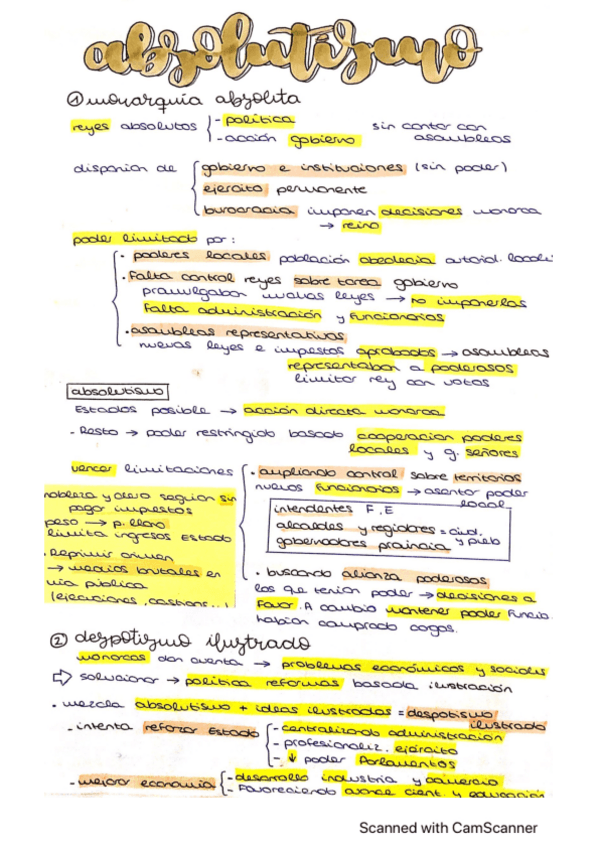 absolutismo
① monarquía absolita
reyes absolutos - política sin contar con
- acción gobierno asambleas
disponían de gobierno e instituciones (sin poder)
ejercito permanente
burocracia imponen decisiones monarca
→ reino
poder limitado por:
· poderes locales población obedecía autorid. local
· Falta control reyes sobre tarea gobierno
promulgaban nuevas leyes → no imponerlas
Falta administración y funcionarios
· asambleas representativas
nuevas leyes e impestos aprobados → asambleas
representaban a poderosos
limitar rey con votos
absolutismo
Estados posible → acción directa monarca
- Resto → poder restringido basado cooperacion poderes
locales y g. señores
vencer limitaciones · ampliando control sobre territorios
nuevos funcionarios → asentar poder
local
intendentes F.E
alcaldes y regidores = ciud.
gobernadores provincia y pueb
nobleza y clero seguían sin
pagar impuestos
peso → p. llano
limita ingresos Estado
· Reprimir crimen
→ medios brutales en
vía pública
(ejecuciones, castigos...)
· buscando alianza poderosos
los que tenían poder → decisiones a
favor. A cambio mantener poder Funcio.
habían comprado cargos.
② despotismo ilustrado
monarcas dan cuenta → problemas económicos y sociales
⇨ solucionar → política reformas basada ilustración
· mezcla absolutismo + ideas ilustradas = despotismo
ilustrado
- intenta reforzar Estado - centralizando administración
- profesionaliz. ejército
- ↓ poder Parlamentos
- mejorar economía - desarrollo industria y comercio
- Favoreciendo avance cient. y educación
Scanned with CamScanner